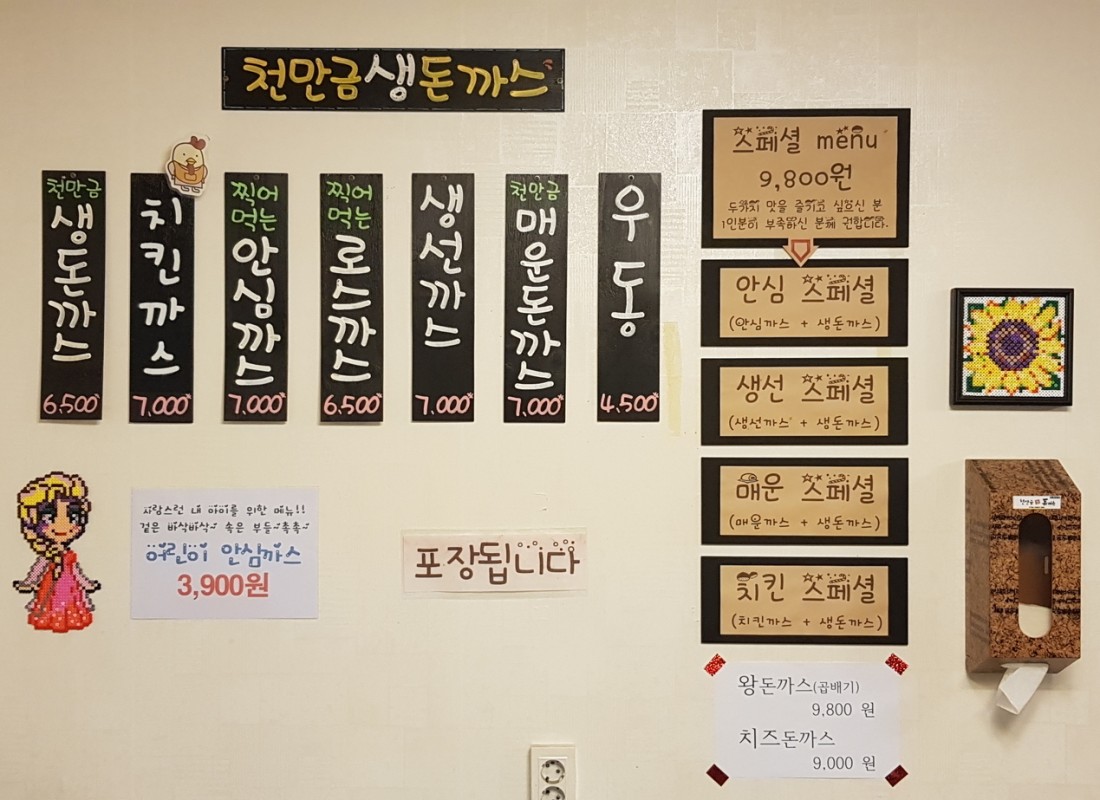 천만금생돈까스
천만금
생돈까스
6,500
치킨까스
7,000
찍어
먹는
안심까스
7,000
찍어
먹는
로스까스
6,500
생선까스
7,000
천만금
매운돈까스
7,000
우동
4,500
스페셜 menu
9,800원
두가지 맛을 즐기고 싶으신 분
1인분이 부족하신 분께 권합니다.
안심 스페셜
(안심까스 + 생돈까스)
생선 스페셜
(생선까스 + 생돈까스)
매운 스페셜
(매운까스 + 생돈까스)
치킨 스페셜
(치킨까스 + 생돈까스)
왕돈까스(곱배기)
9,800 원
치즈돈까스
9,000 원
사랑스런 내 아이를 위한 메뉴!!
겉은 바삭바삭~ 속은 부들~촉촉~
어린이 안심까스
3,900원
포장됩니다